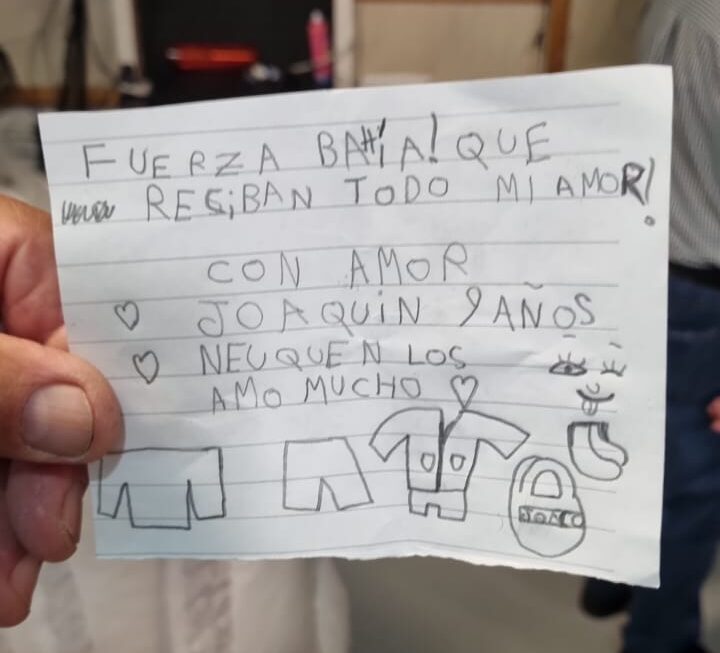 FUERZA BAHÍA! QUE
RESiBAN TODO MI AMOR!
CON AMOR
JOAQUIN 9 AÑOS
NEUQUEN LOS
AMO MUCHO